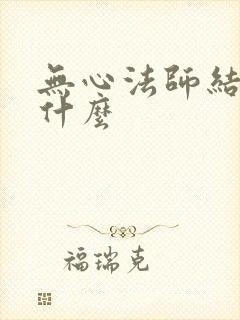 無心法師結
什麼
福瑞克